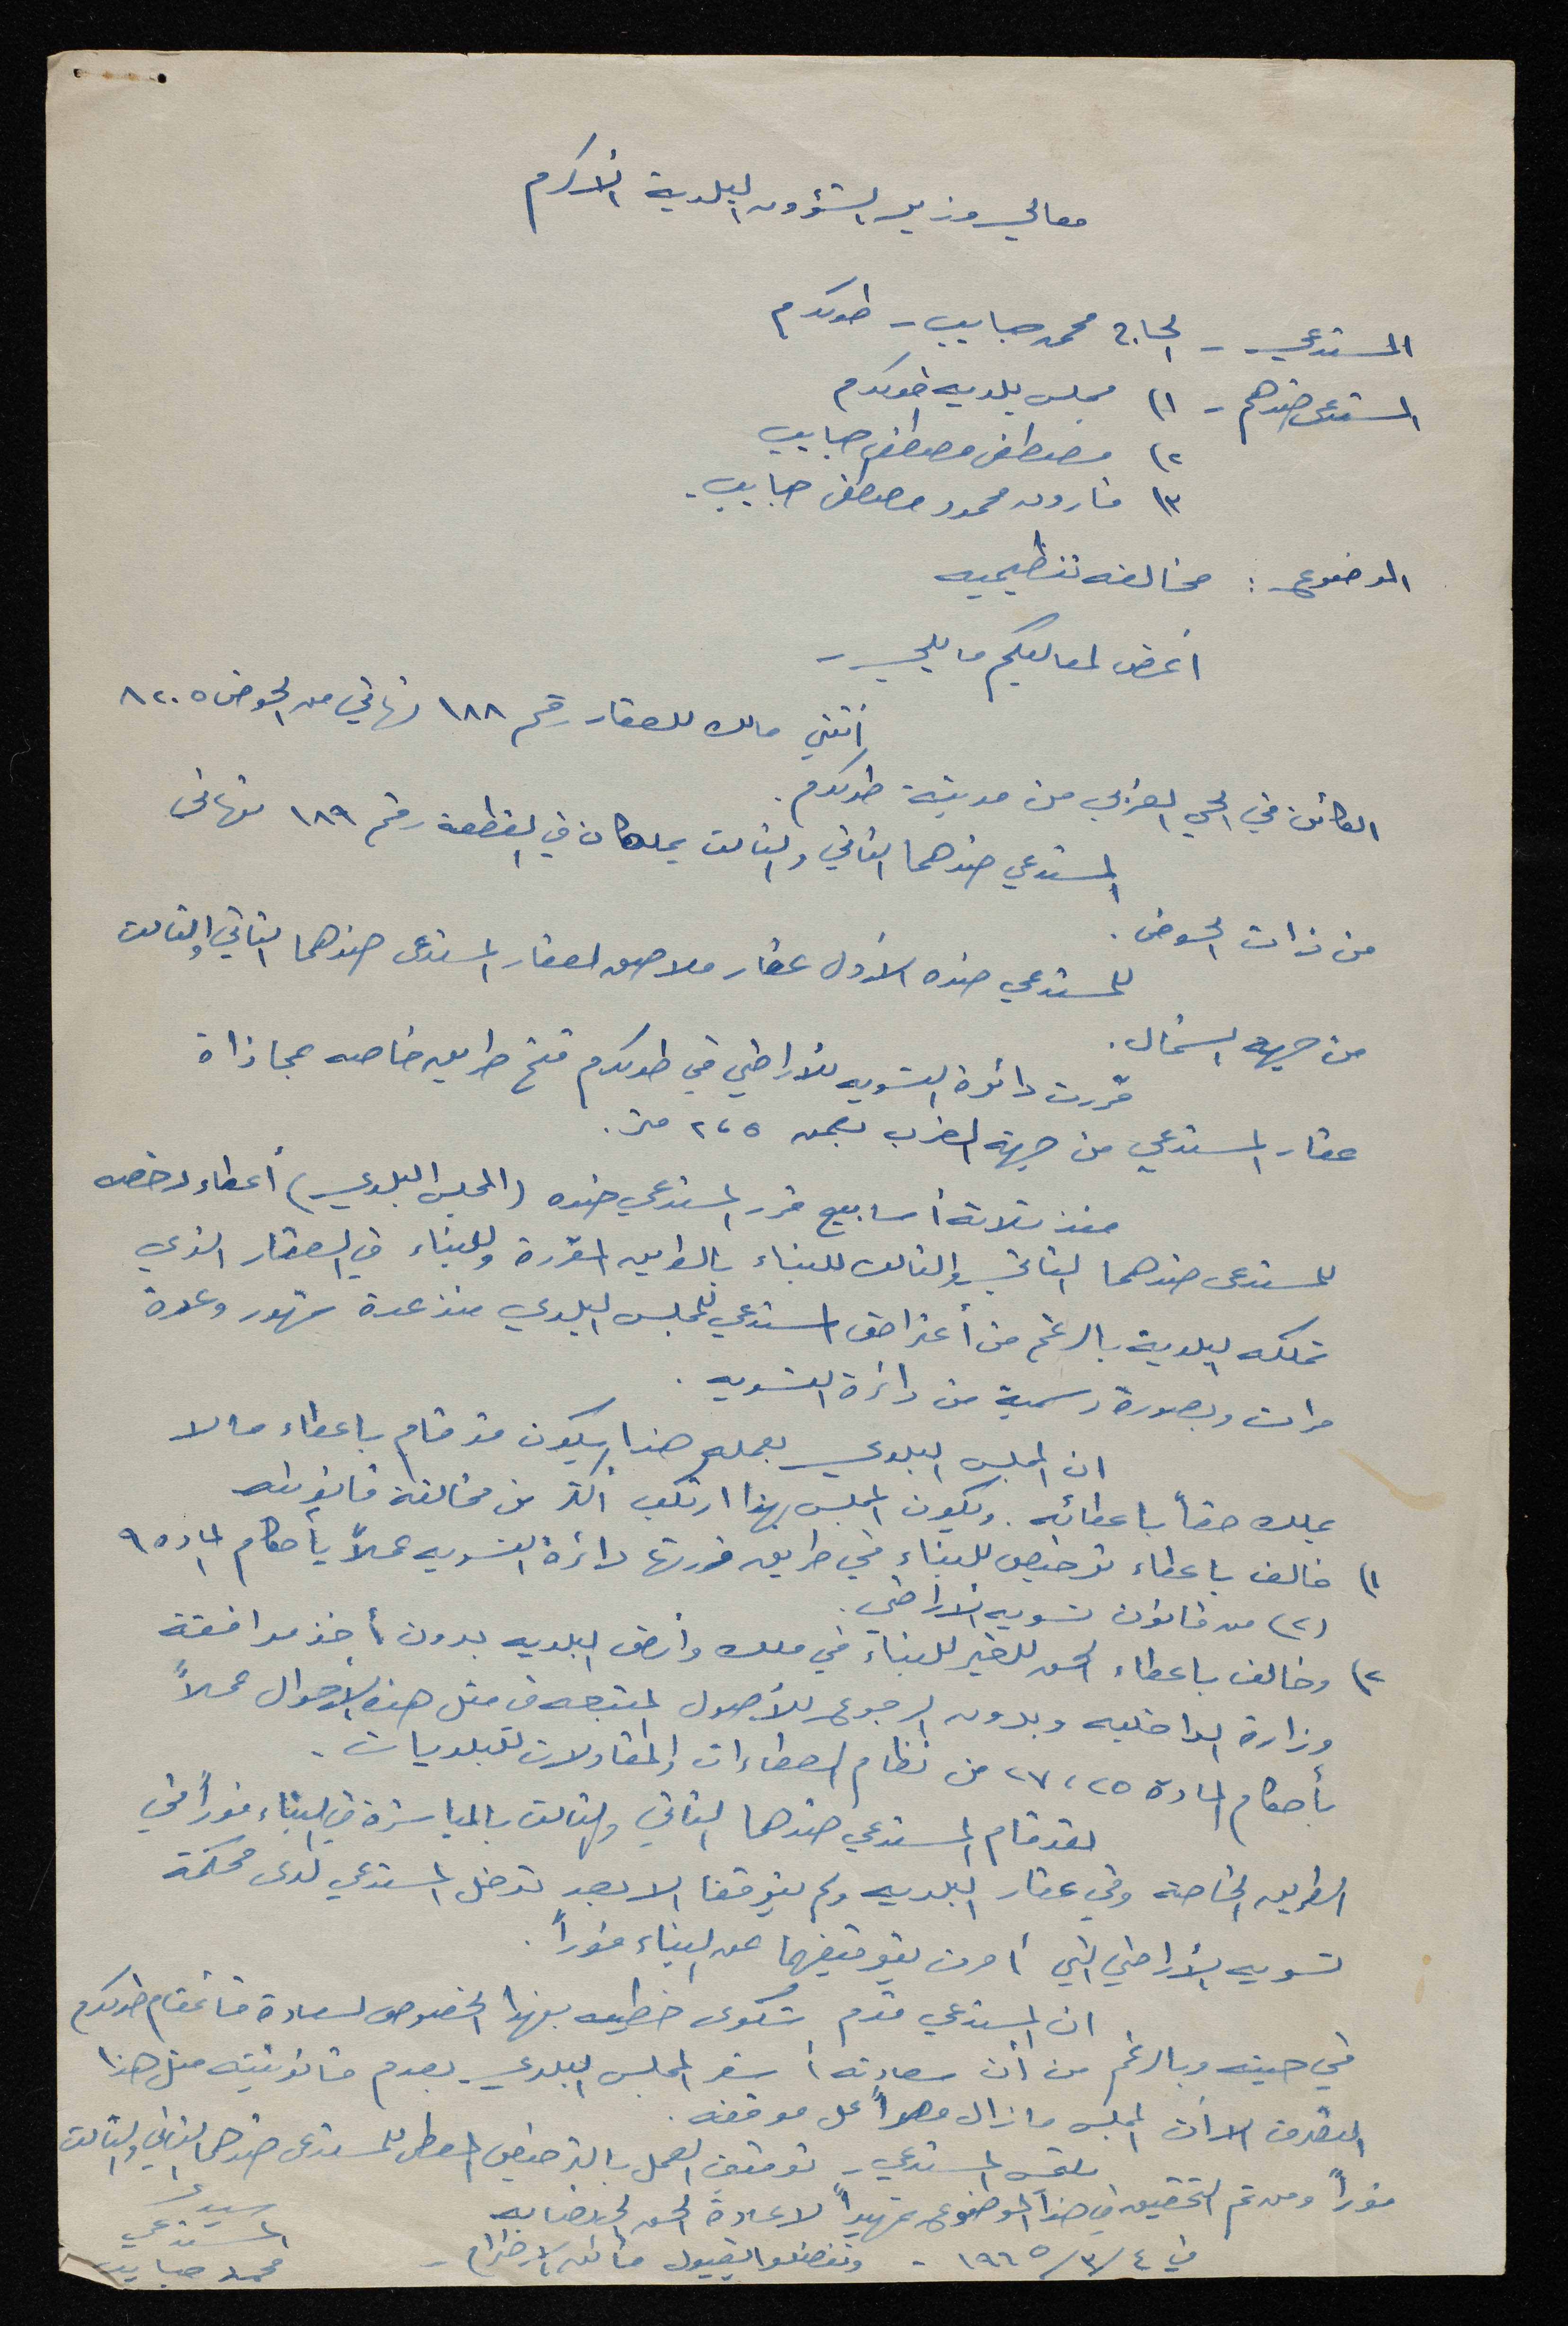 معالي وزير الشؤون البلدية الأكرم
المستدعي - الحاج محمد حبايب - طولكرم
المستدعى ضدهم - ١) مجلس بلديه طولكرم
٢) مصطفى مصطفى حبايب
٣) فاروق محمود مصطفى حبايب.
الموضوع : مخالفه تنظيميه
أعرض لمعاليكم ما يلي -
أنني مالك للعقار رقم ١٨٨ نهائي من الحوض ٨٢٠٥
الكائن في الحي الغربي من مدينة طولكرم.
المستدعي ضدهما الثاني والثالث يملكان في القطعة رقم ١٨٩ نهائي
من ذات الحوض.
للمستدعي ضده الأول عقار ملاصق لعقار المستدعى ضدهما الثاني والثالث
من جهه الشمال.
قررت دائرة التسويه للأراضي في طولكرم فتح طريق خاصه بمحاذاة
عقار المستدعي من جهة الغرب بعمق ٢،٥ متر.
منذ ثلاثة أسابيع قرر المستدعي ضده (المجلس البلدي) أعطاء رخصه
للمستدعى ضدهما الثاني والثالث للبناء بالطريق المقررة وللبناء في العقار الذي
تملكه البلدية بالرغم من أعتراض المستدعي للمجلس البلدي منذ عدة شهور وعدة
مرات وبصورة رسمية من دائرة التسويه.
ان المجلس البلدي بعمله هذا يكون قد قام باعطاء ما لا
يملك حقاً باعطائه. ويكون المجلس بهذا ارتكب أكثر من مخالفة قانونيه
١) خالف باعطاء ترخيص للبناء في طريق قررتها دائرة التسويه عملاً بأحكام الماده ٩
(٢) من قانون تسويه الأراضي.
٢) وخالف باعطاء الحق للغير للبناء في ملك وأرض البلديه بدون أخذ موافقة
وزارة الداخليه وبدون الرجوع للأصول المتبعه في مثل هذه الأحوال عملاً
بأحكام المادة ٢٥ ، ٢٧ من نظام العطاءات والمقاولات للبلديات.
لقد قام المستدعي ضدهما الثاني والثالث بالمباشرة في البناء فوراً في
الطريق الخاصة وفي عقار البلديه ولم يتوقفا الا بعد تدخل المستدعي لدى محكمة
تسويه الأراضي التي أمرت بتوقيفهما عن البناء فوراً.
ان المستدعي قدم شكوى خطيه بهذا الخصوص لسعادة قائمقام طولكرم
في حينه وبالرغم من أن سعادته أشعر المجلس البلدي بعدم قانونيته مثل هذا
التصرف الا أن المجلس ما زال مصراً على موقفه.
يلتمس المستدعي - توقيف العمل بالترخيص المعطى للمستدعى ضدهما الثاني والثالث
فوراً ومن ثم التحقيق في هذا الموضوع تمهيداً لاعادة الحق لنصابه
وتفضلوا بقبول فائق الاحترام -
في ٤/٣/١٩٦٥ -
سيدي
المستدعي
محمد حبايب